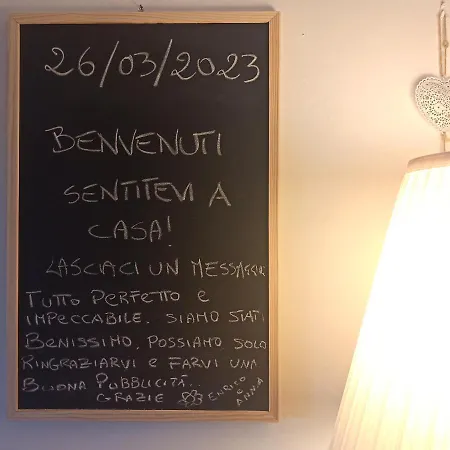 26/03/2023
BENVENUTI
SENTITEVI A
CASA!
LASCIACI UN MESSAGGIO
TUTTO PERFETTO E
IMPECCABILE. SIAMO STATI
BENISSIMO. POSSIAMO SOLO
RINGRAZIARVI E FARVI UNA
BUONA PUBBLICITÀ..
GRAZIE ENRICO
E
ANNA